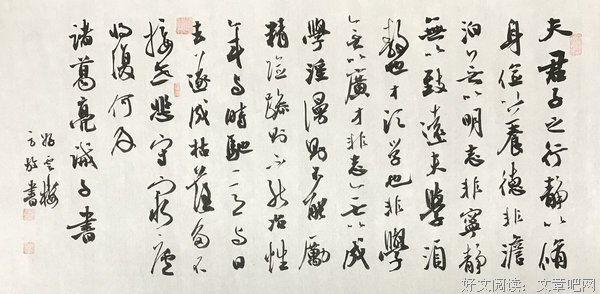 夫君子之行静以脩
身儉以養德非澹
泊無以明志非寧静
無以致遠夫學須
静也才須学也非學
無以廣才非志無以成
學淫漫則不能勵
精險躁則不能治性
年与時馳意与日
去遂成枯落多不
接世悲守窮廬
将復何及
諸葛亮誡子書
好文阅读：文章吧网